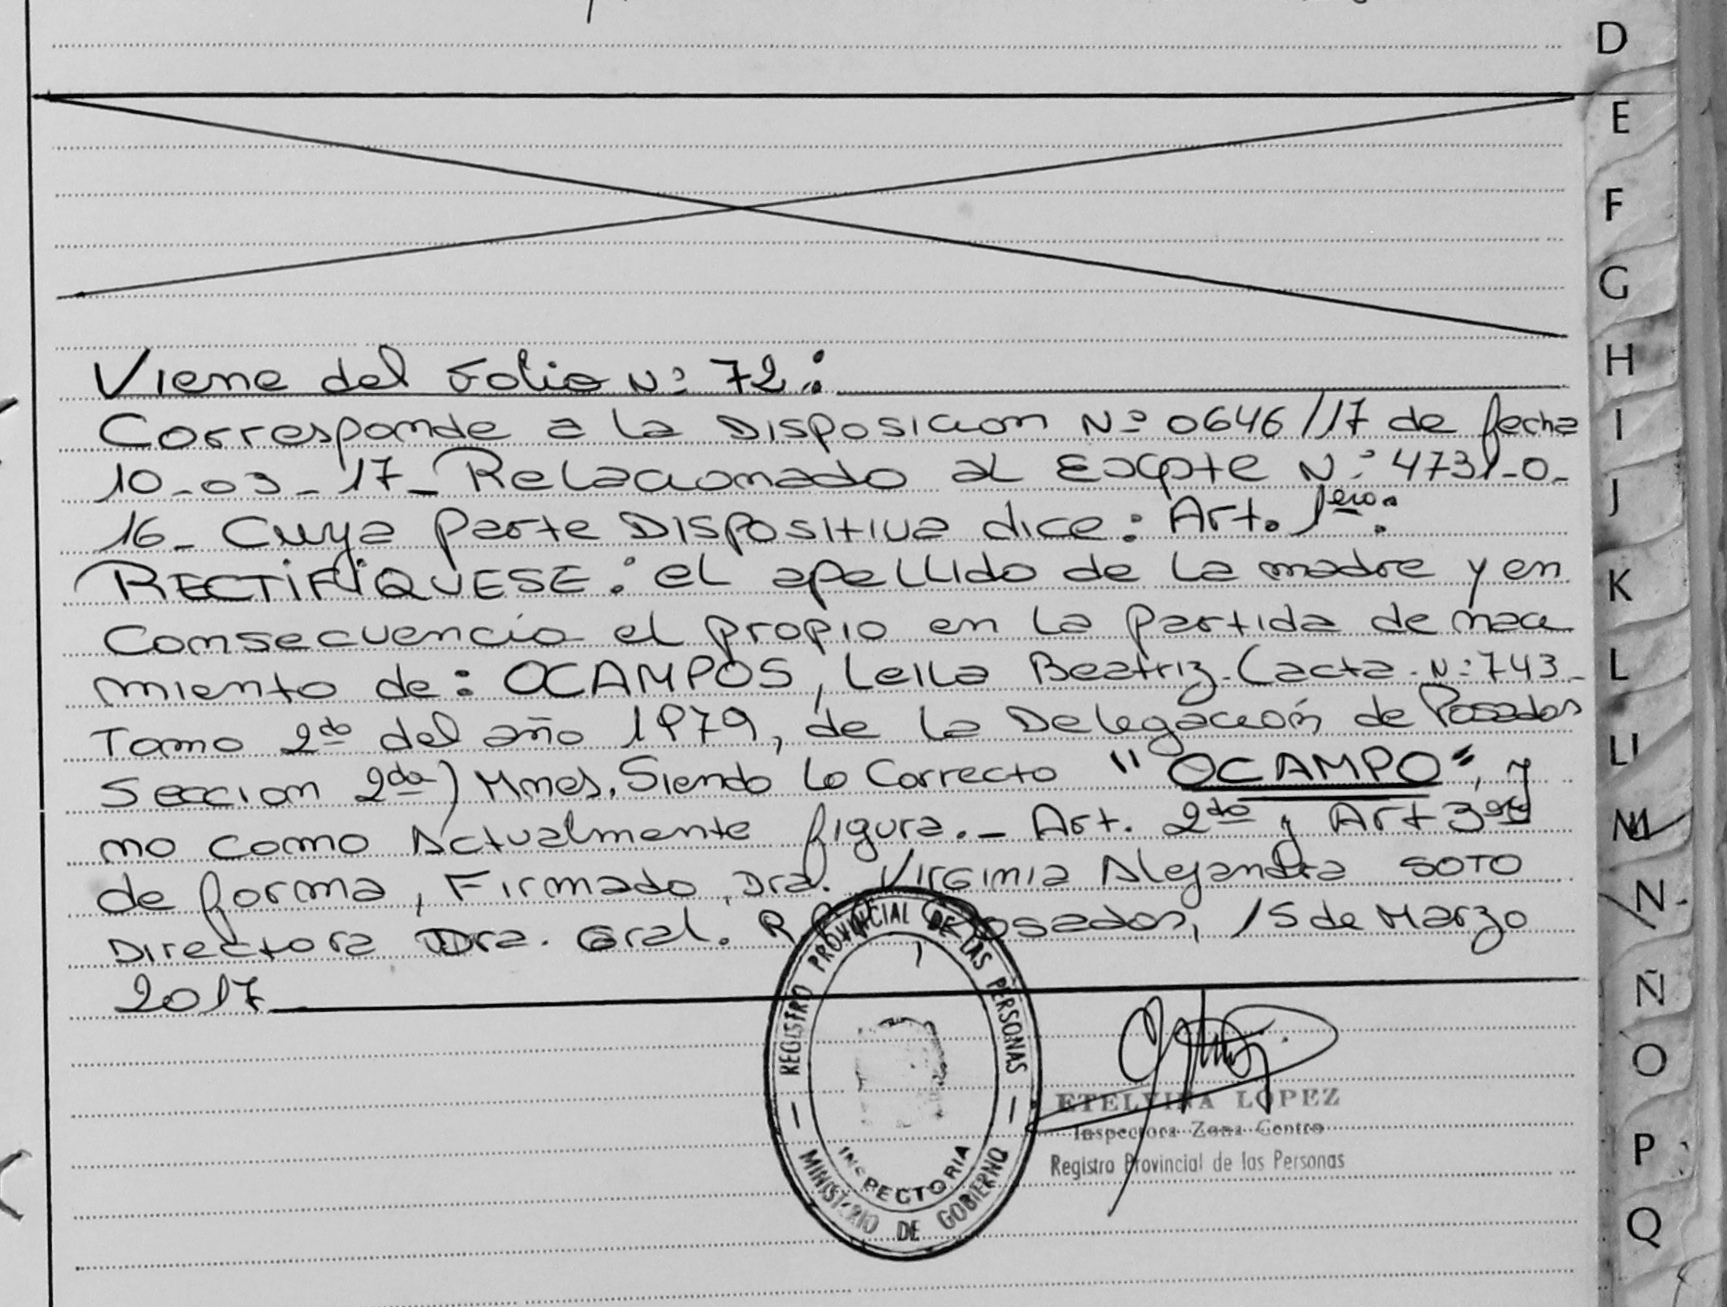 Viene del Folio N: 72:
Corresponde a la Disposicion Nº 0646/17 de fecha
10-03-17- Relacionado al Expte N: 4731-0-
16- Cuya parte Dispositiva dice: Art. 1ero:
RECTIFIQUESE: el apellido de la madre y en
consecuencia el propio en la partida de naci
miento de: OCAMPOS, Leila Beatriz (acta N: 743-
Tomo 2do del año 1979, de la Delegación de Posadas
Seccion 2da) Mnes. Siendo lo Correcto "OCAMPO", y
no como Actualmente figura.- Art. 2do y Art 3ero
de forma, Firmado, Dra. Virginia Alejandra SOTO
Directora Dra. Gral. R Posadas, 15 de Marzo
2017
REGISTRO PROVINCIAL DE LAS PERSONAS
INSPECTORIA
MINISTERIO DE GOBIERNO
ETELVINA LOPEZ
Inspectora Zona Centro
Registro Provincial de las Personas
D
E
F
G
H
I
J
K
L
LL
M
N
Ñ
O
P
Q